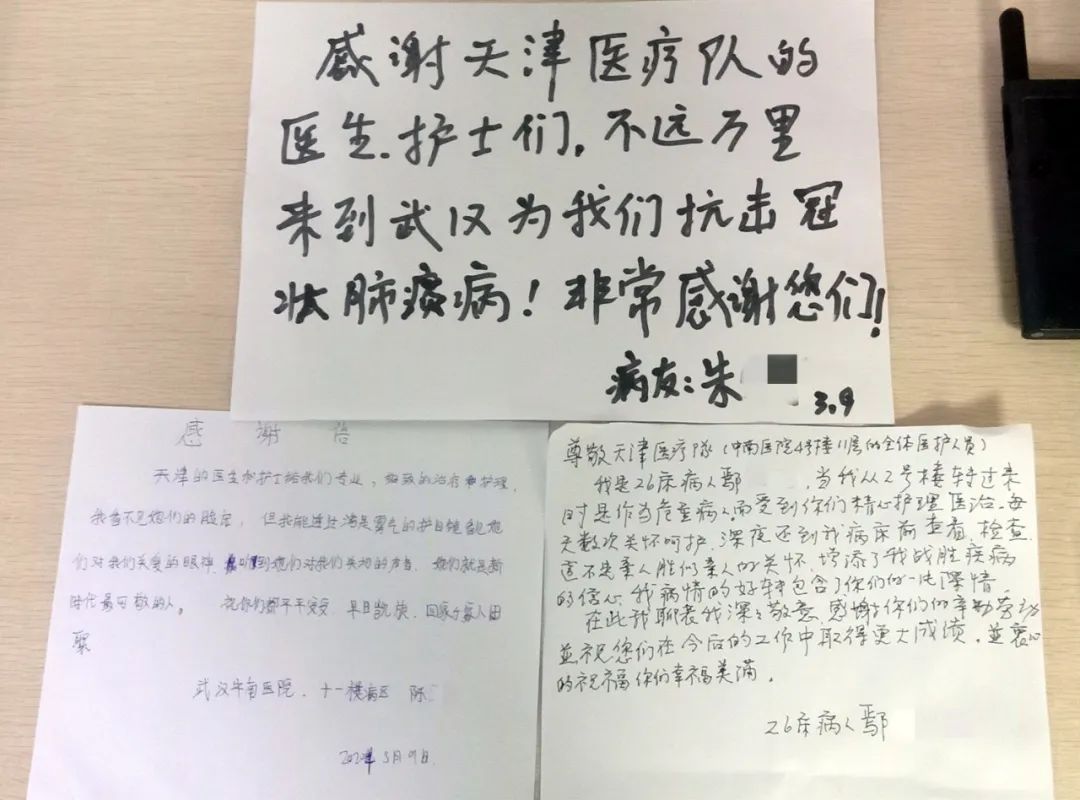 感谢天津医疗队的
医生.护士们,不远万里
来到武汉为我们抗击冠
状肺炎病!非常感谢您们!
病友:朱
3.9
感 谢 信
天津的医生和护士给我们专业,细致的治疗和护理,
我看不见她们的脸庞,但我能透过满是雾气的护目镜看见她
们对我们关爱的眼神,听到她们对我们关切的声音,她们就是新
时代最可敬的人。祝你们都平平安安,早日凯旋,回家与家人团
聚
武汉中南医院,十一楼病区 陈
2020年3月9日.
尊敬天津医疗隊(中南医院4号楼11层的全体医护人员)
我是26床病人鄢,当我从2号楼转过来
时是作为危重病人,而受到你们精心护理医治.每
天数次关怀呵护.深度还到我病床前查看,检查.
这不是亲人胜似亲人的关怀,增添了我战胜疾病
的信心.我病情的好转包含了你们的一片深情.
在此我聊表我深深敬意,感谢你们的辛勤劳动
並祝您们在今后的工作中取得更大成绩,並衷心
的祝福你们幸福美满。
26床病人鄢